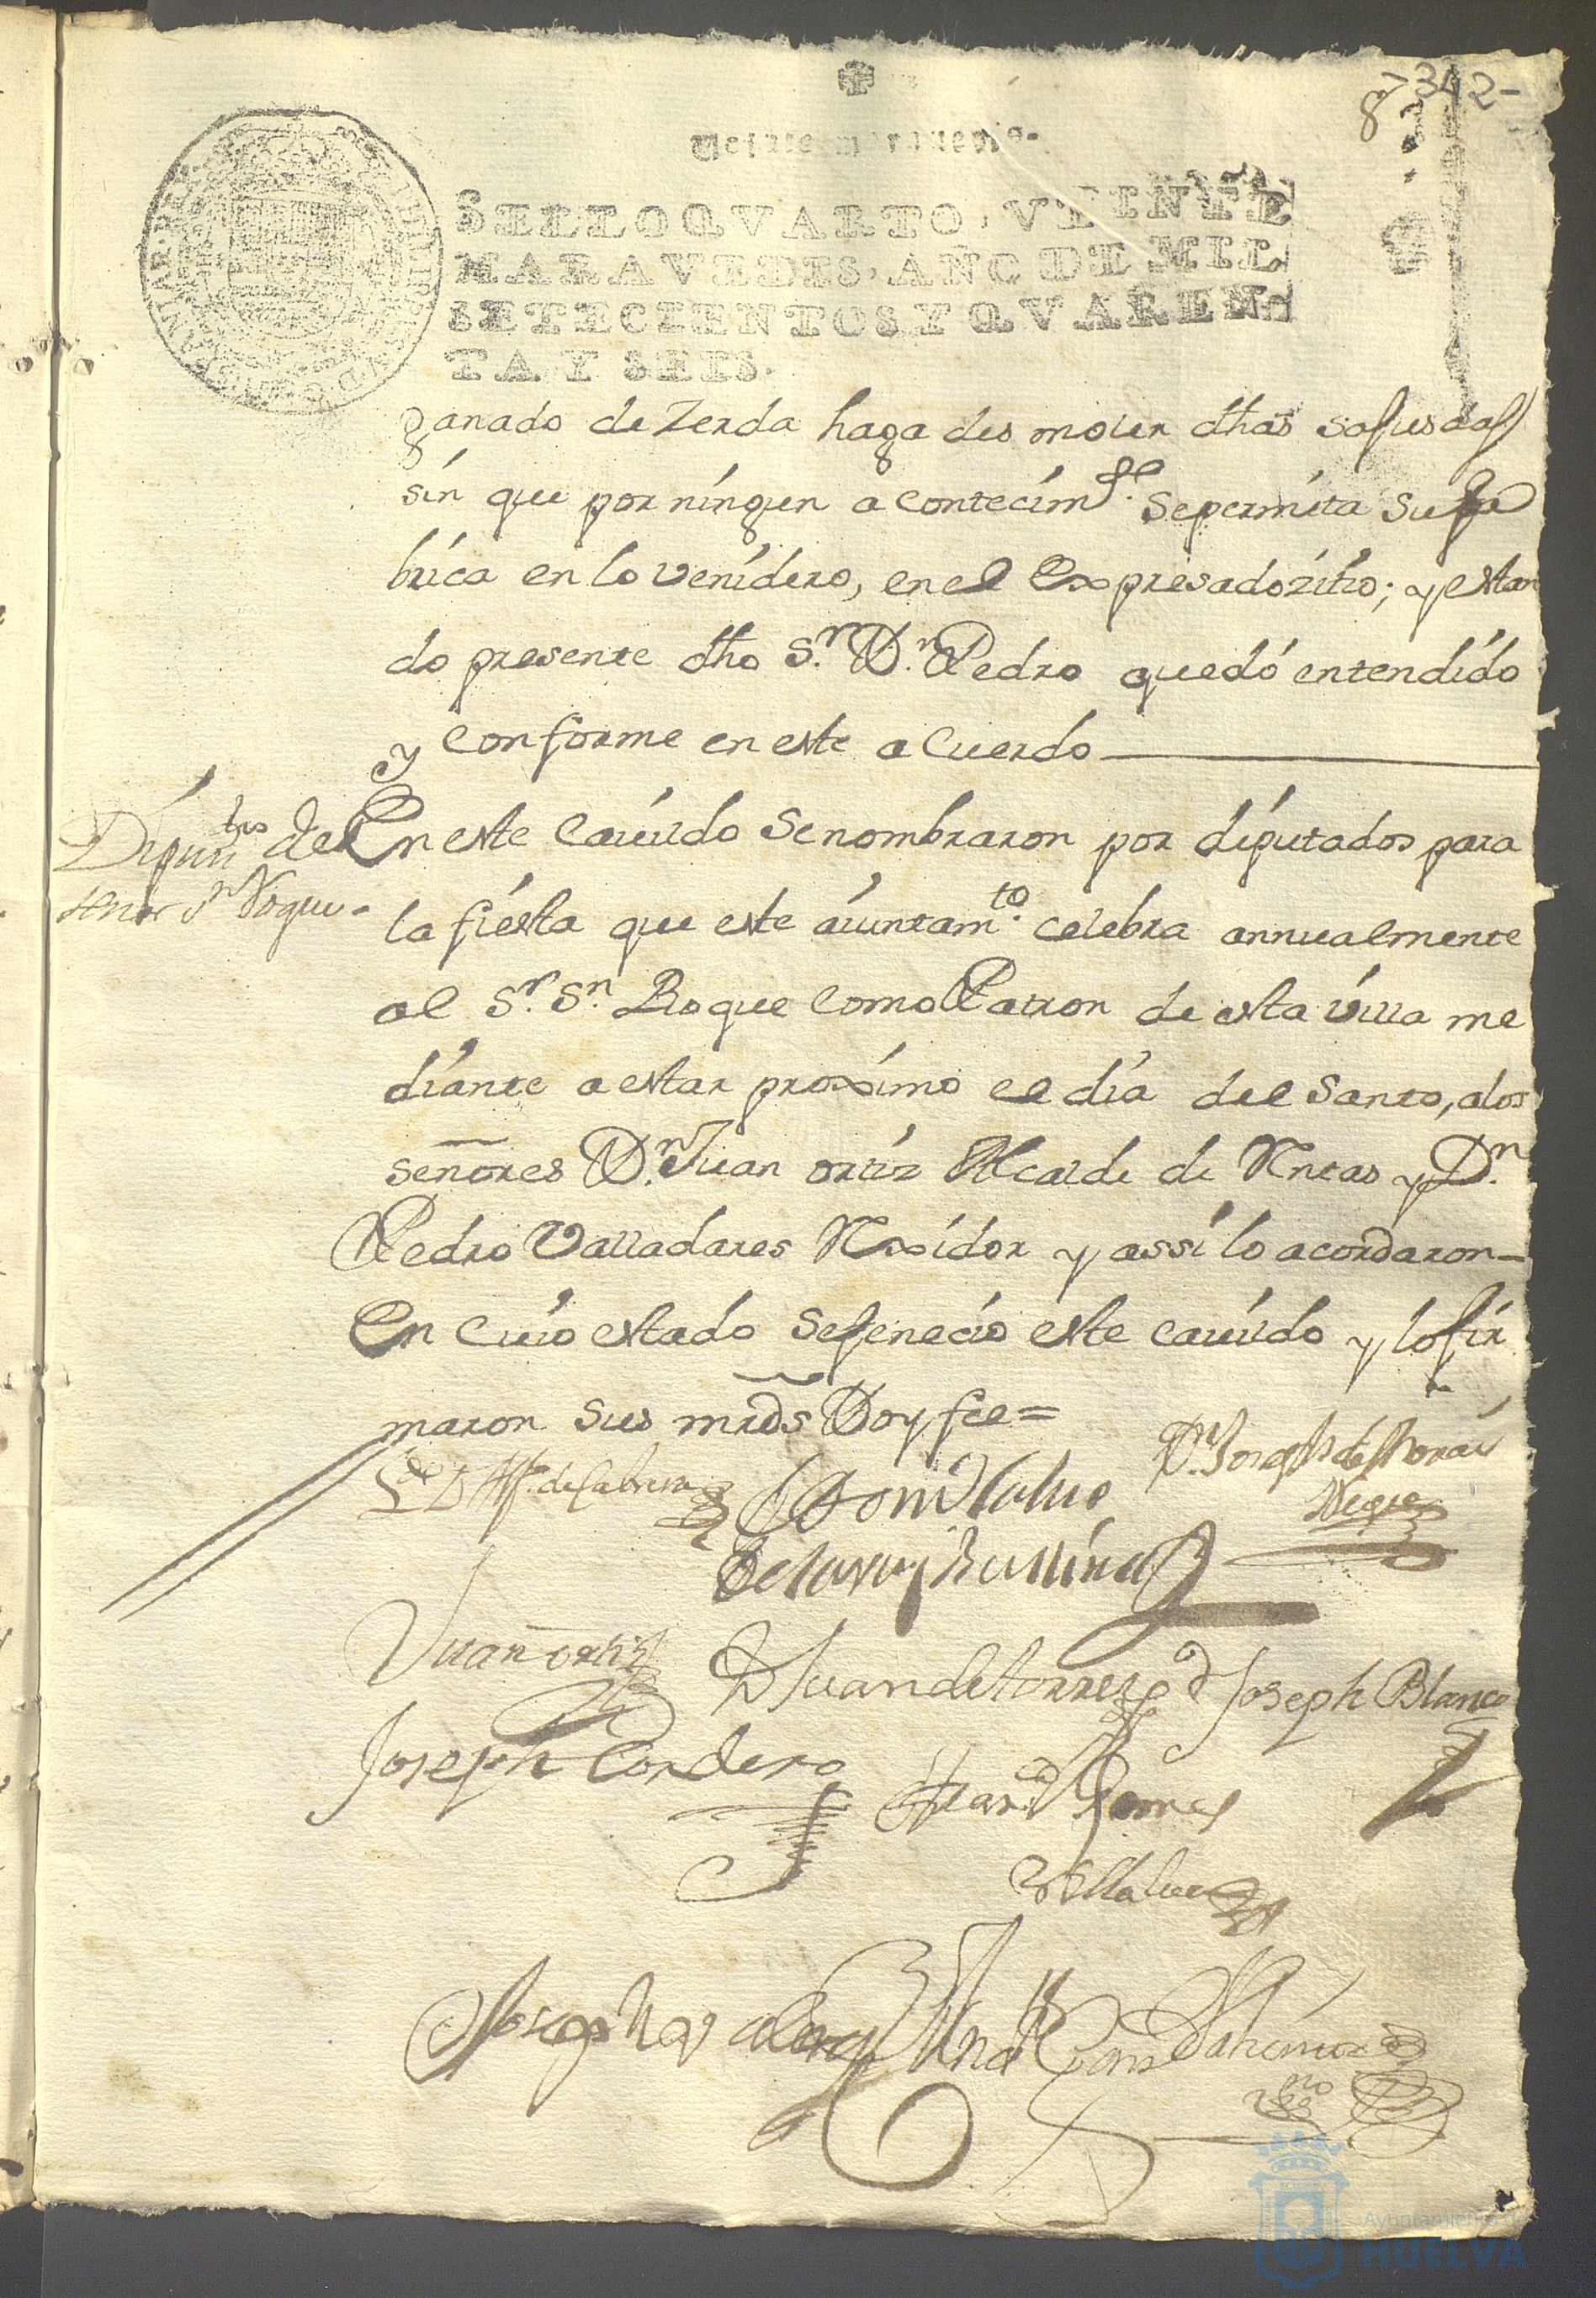 342-
Veinte maravedis.
SELLO QVARTO, VEINTE
MARAVEDIS, AÑO DE MIL
SETECIENTOS Y QVAREN-
TA Y SEIS.
ganado de Zerda haga des moler dhas
sin que por ningun acontecim.to se permita su fa
brica en lo venidero, en el Expresado zitio; y estan
do presente dho S.r D.n Pedro quedó entendido
y conforme en este acuerdo
Diputtos del
señor Sn Roque-
En este Cavildo se nombraron por diputados para
la fiesta que este aiuntam.to celebra annualmente
al S.r S.n Roque como Patron de esta villa me
diante a estar proximo el dia del Santo, alos
señores D.n Juan ortiz Alcalde de y D.n
Pedro Valladares Rexidor y assi lo acordaron-
En cuio estado se fenecio este cavildo y lo fir
maron sus mrds Doy fee=
Ldo D Alfo. de Cabrera
D.n Joseph de
Juan ortiz
D Juan de torres
Joseph Blanco
Joseph Cordero
Franco Gomes
Joseph
Ayuntamiento de
HUELVA